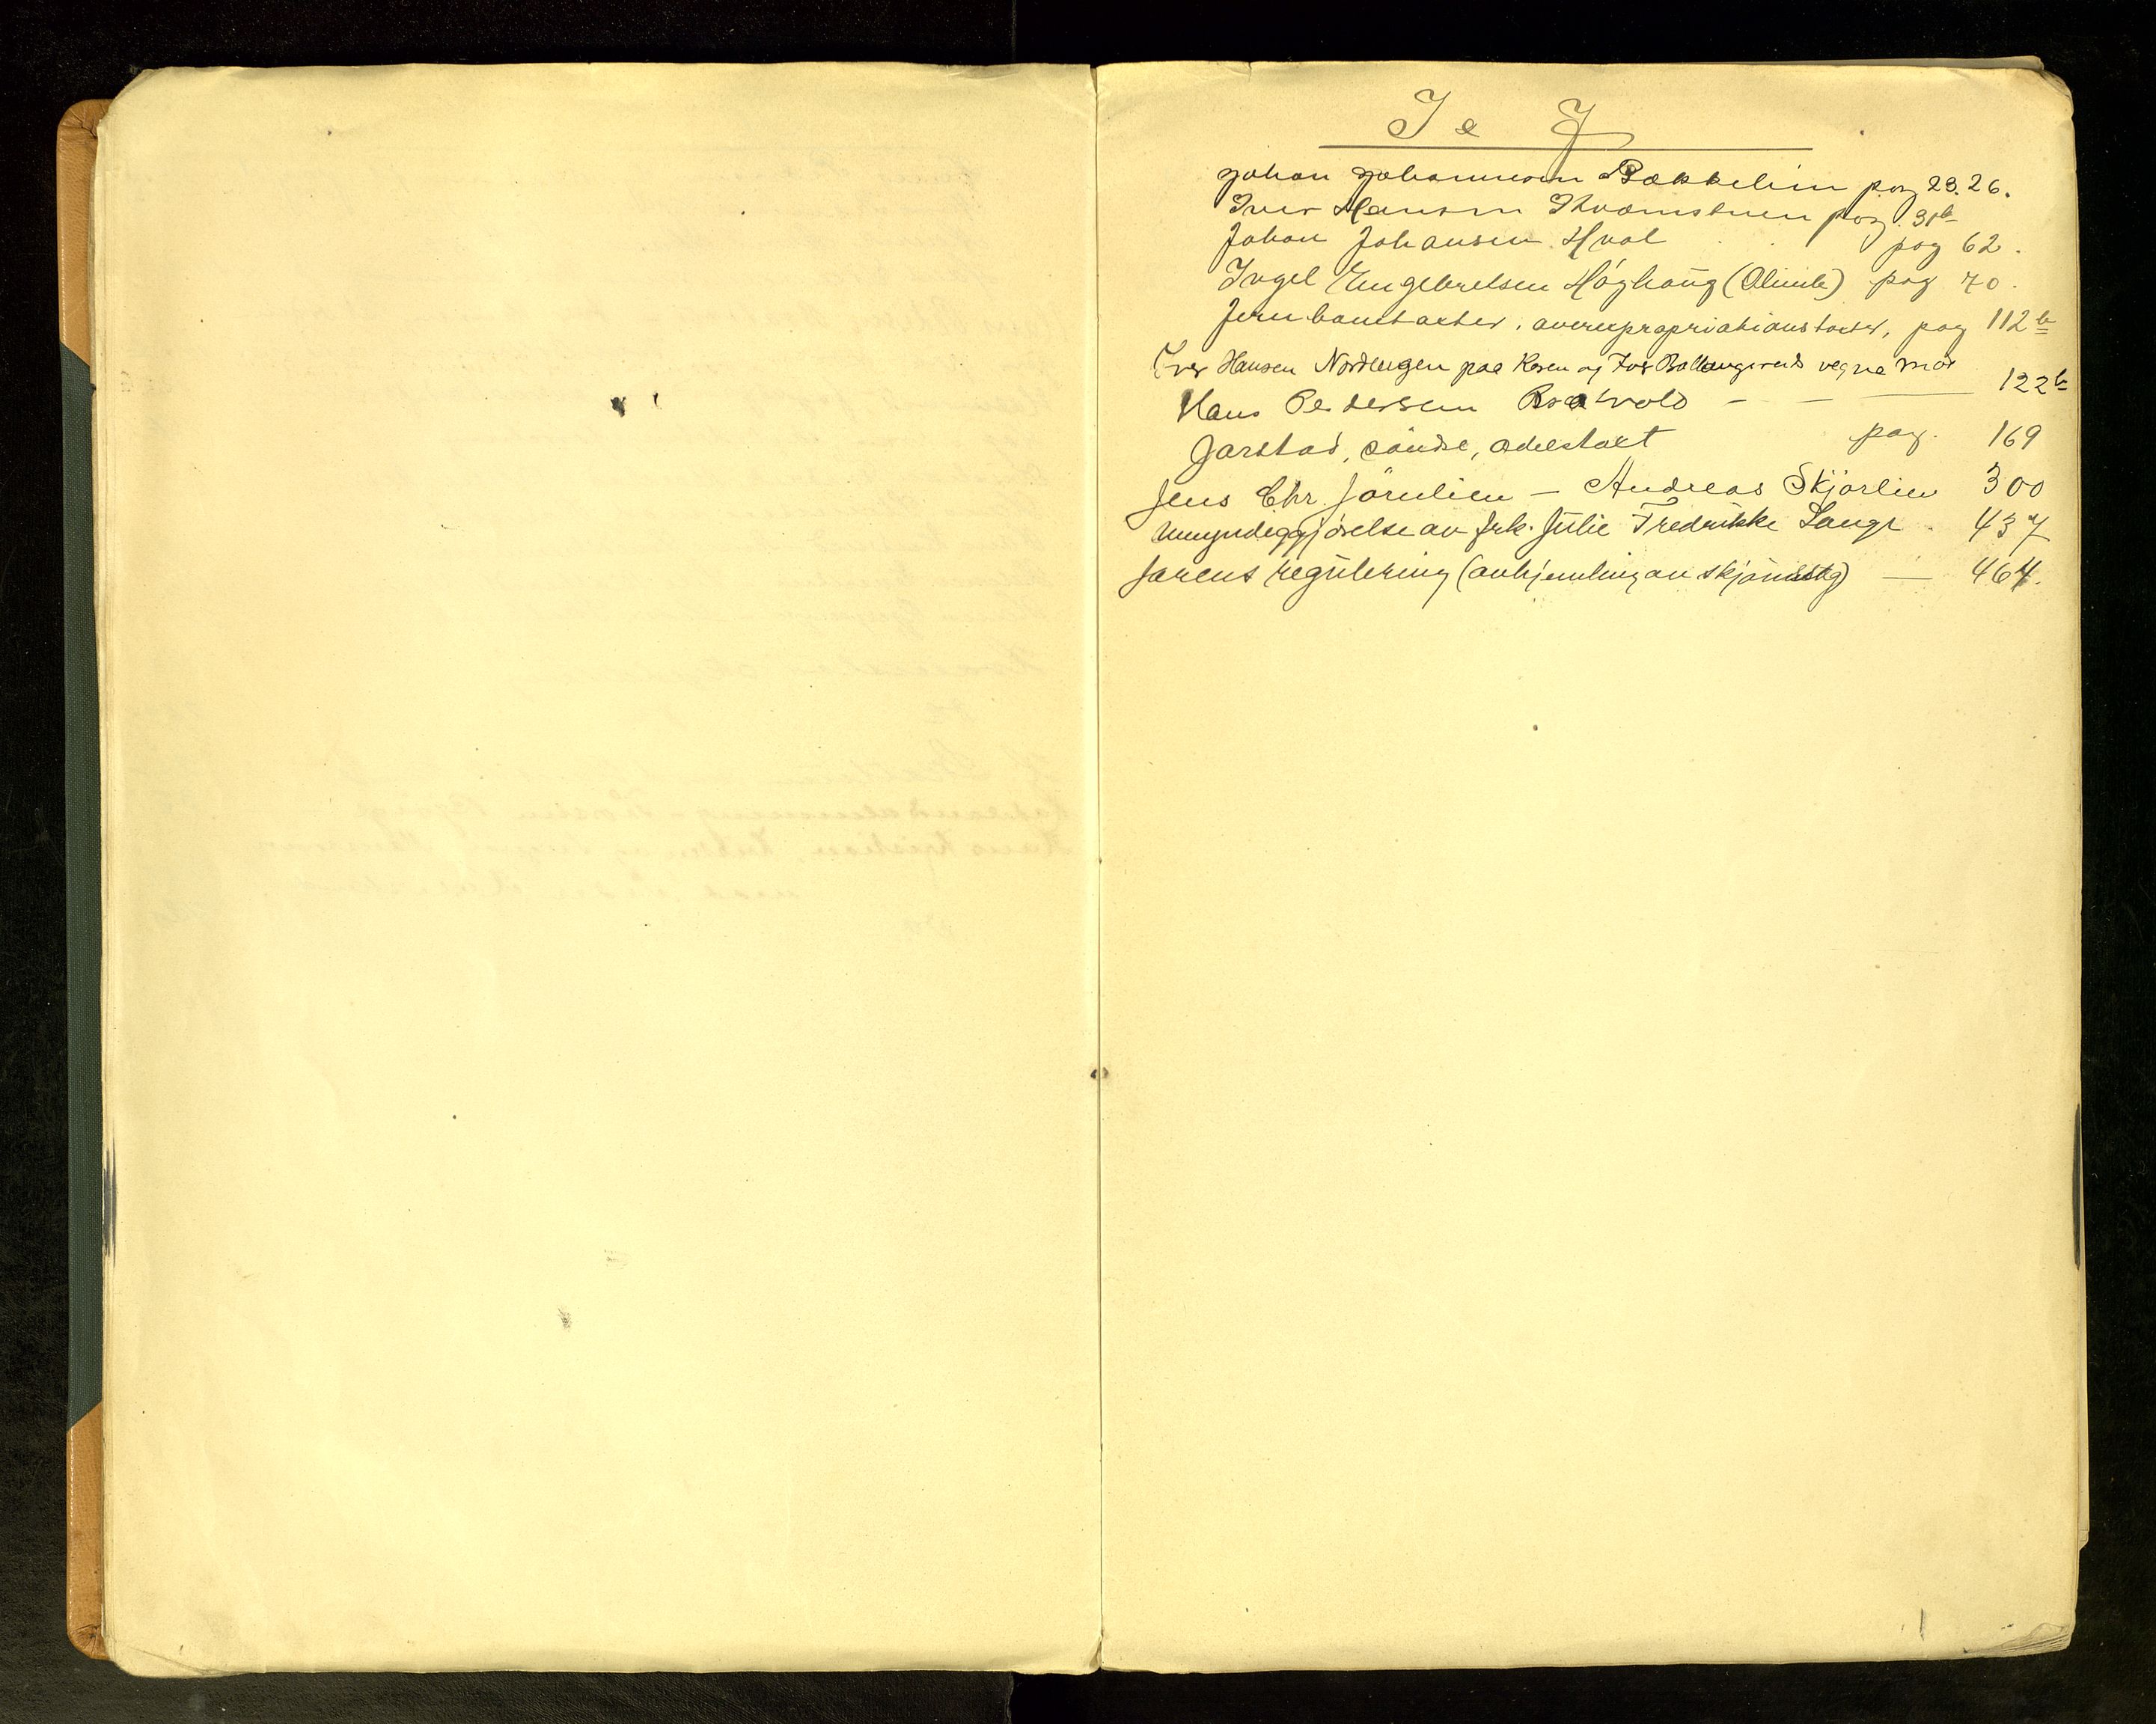 I & J
Johan Johannesen Bækkelien pag 23. 26.
Iver Hansen Kvæmstuen pag. 31b
Johan Johansen Hval pag 62.
Ingel Engebretsen Höghaug (Olimb) pag 70.
Jernbanetakter, averexpropriationstakter, pag 112b
Iver Hansen Nordengen paa Karen og Ivar Ballangruds vegne mot
Hans Pedersen Brætvold — — — 122b
Jarstad, söndre, odelstakt pag. 169
Jens Chr. Jörnlien — Andreas Skjørlien 300
Umyndiggjörelse av frk. Julie Fredrikke Lange. 437
Jarens regulering (avhjemling av skjönn) — 464.